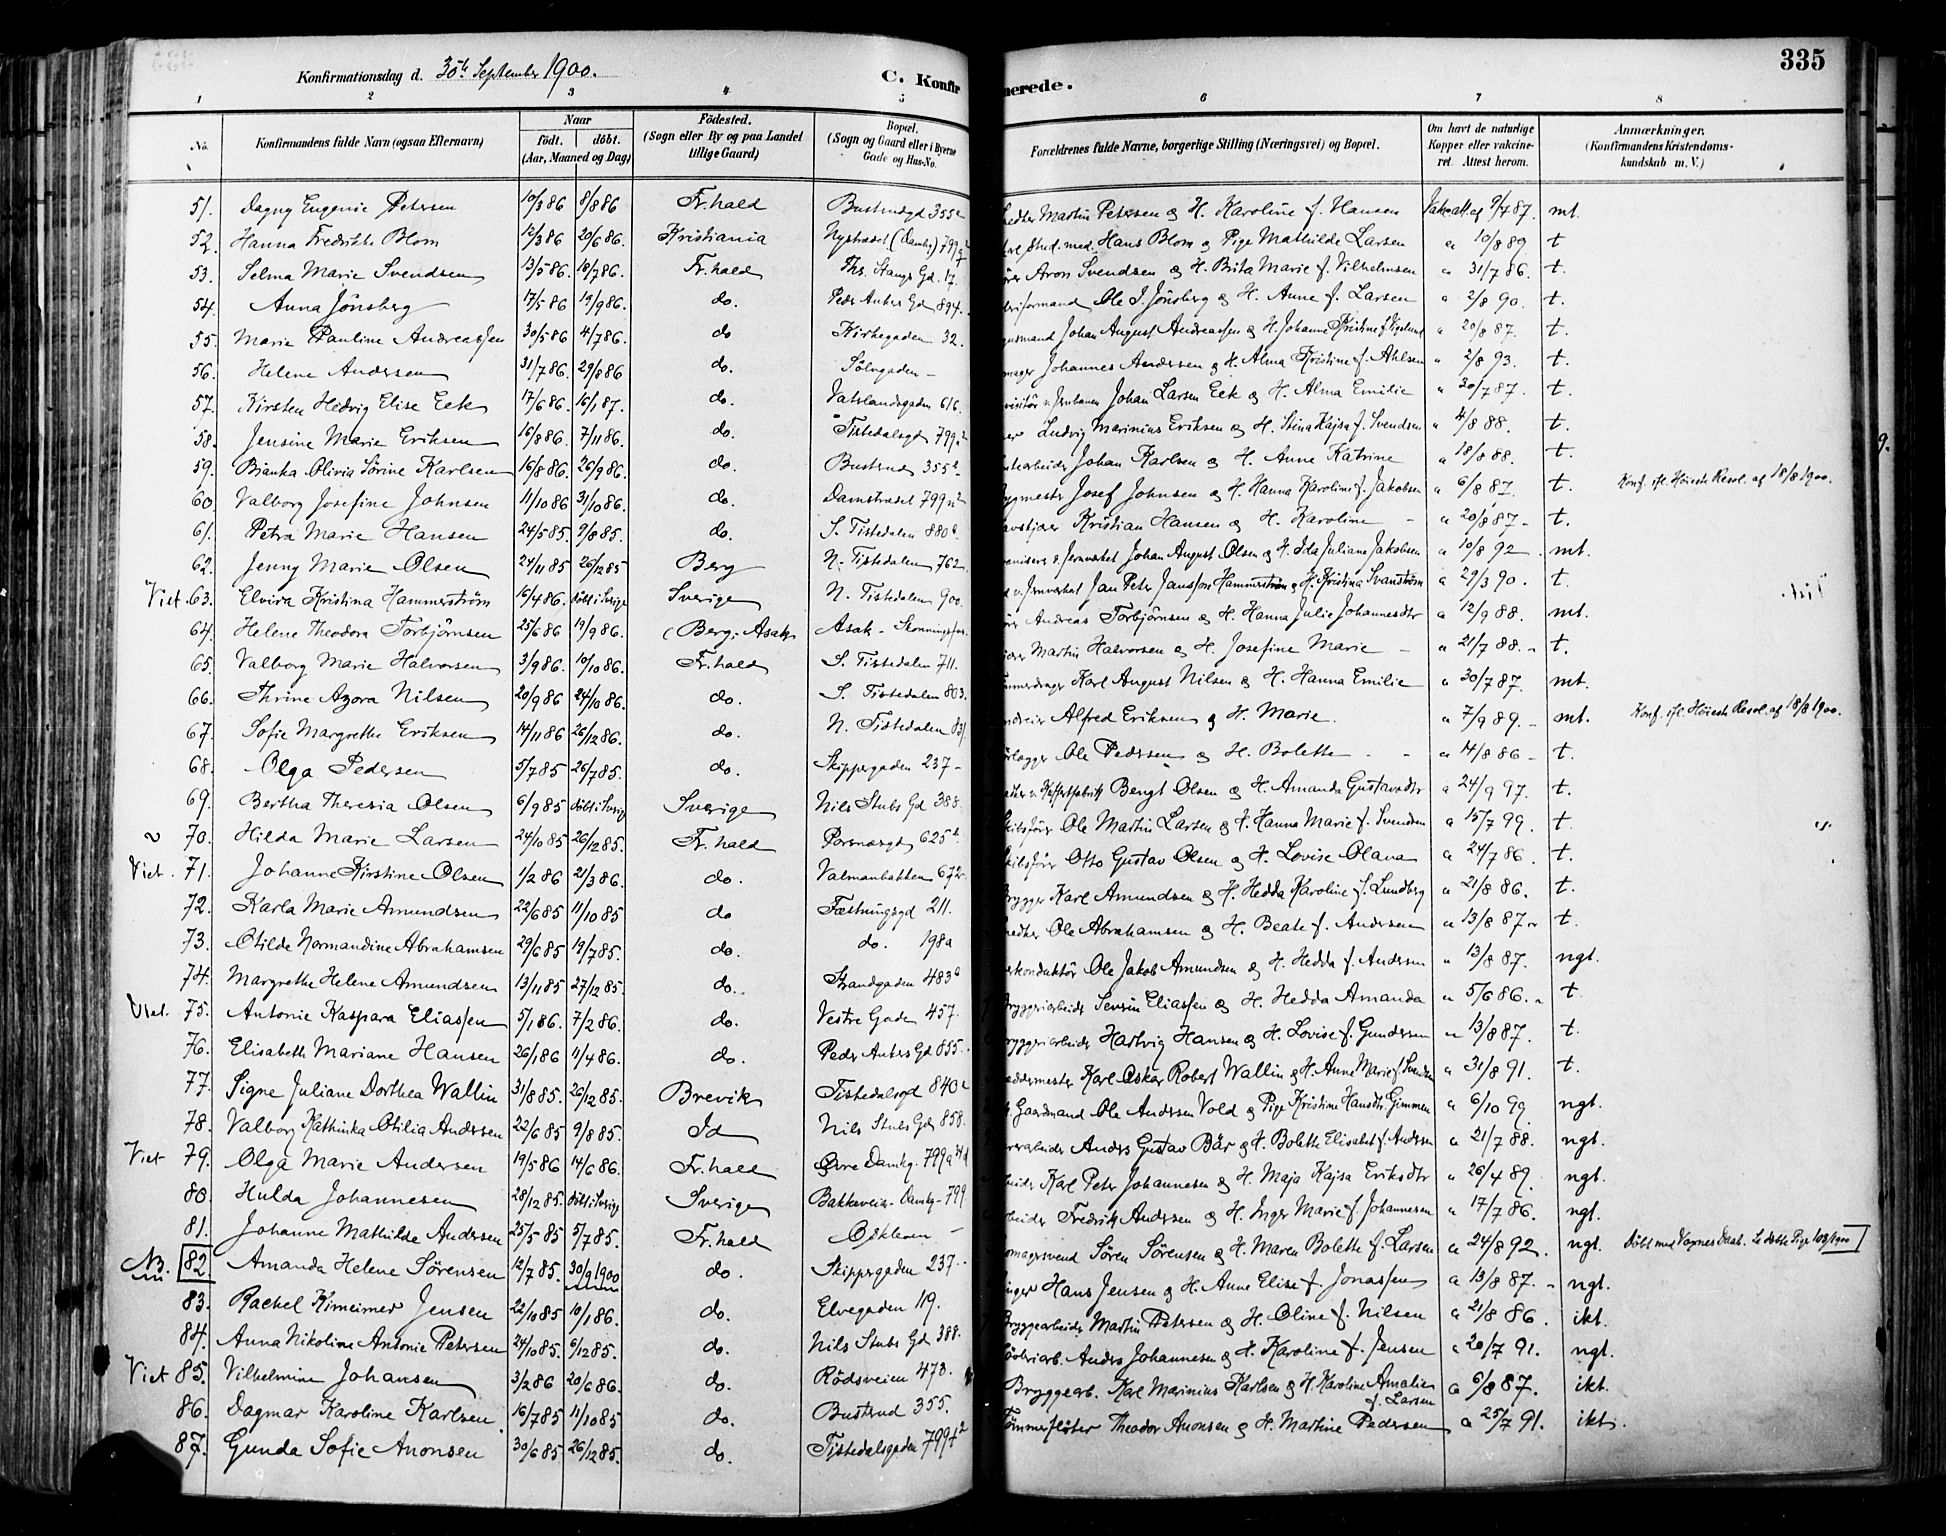 335
Konfirmationsdag d. 30th September 1900.
C. Konfirmerede.
1 2 3 4 5 6 7 8
No. Konfirmandens fulde Navn (ogsaa Efternavn) Naar födt. döbt. (Aar, Maaned og Dag) Födested. (Sogn eller By og paa Landet tillige Gaard) Bopæl. (Sogn og Gaard eller i Byerne Gade og Hus-No. Forældrenes fulde Navne, borgerlige Stilling (Næringsvei) og Bopæl. Om havt de naturlige Kopper eller vakcineret. Attest herom. Anmærkninger. (Konfirmandens Kristendomskundskab m. V.)
51. Dagny Eugenie Petersen 10/3 86 8/8 86 Fr.hald Bustrudgd 355 Martin Petersen & H. Karoline f. Hansen 9/4 87. mt.
52. Hanna Fredrikke Blom 12/3 86 20/6 86. Kristiania Nystrædet (Damhg) 799 Stud. med. Hans Blom & Pige Mathilde Larsen " 10/8 89 t
53. Selma Marie Svendsen 13/5 86 18/7 86. Fr.hald Ths. Stangs Gd. 17. Aron Svendsen & H. Brita Marie f. Vilhelmsen " 31/7 86. t.
54. Anna Jönsberg 17/5 86 19/9 86. do. Peder Ankers Gd 894. Ole J. Jönsberg & H. Anne f. Larsen " 2/8 90. t.
55. Marie Pauline Andreassen 30/5 86 4/7 86. do Kirkegaden 32. Johan August Andreassen & H. Johanne Kristine f. " 20/8 87. t.
56. Helene Andersen 31/7 86. 29/8 86 do. Sölvgaden - Johannes Andersen & H. Alma Kristine f. Ahlsen " 2/8 93. t.
57. Kirsten Hedvig Elise Eek 17/6 86. 16/1 87. do. Vatslandsgaden 616. Johan Larsen Eek & H. Alma Emilie " 30/7 87. t.
58. Jensine Marie Eriksen 16/8 86. 7/11 86. do. Tistedalsgd 799 Ludvig Marinius Eriksen & H. Stina Kajsa f. Svendsen " 4/8 88. t.
59. Bianka Olivia Sörine Karlsen 16/8 86. 26/9 86. do. Bustrud 355 Johan Karlsen & H. Anne Katrine " 18/8 88. t.
60. Valborg Josefine Johnsen 11/10 86 31/10 86. do. Damstrædet 799 Josef Johnsen & H. Hanna Karoline f. Jakobsen " 6/8 87. t. Konf. ifl. Höieste Resol. af 18/8 1900.
61. Petra Marie Hansen 24/5 85. 9/8 85. do. S. Tistedalen 880 Kristian Hansen & H. Karoline - " 20/8 87 - t.
62. Jenny Marie Olsen 24/11 85 26/12 85 Berg N. Tistedalen 762. Johan August Olsen & H. Ida Juliane Jakobsen " 10/8 92 . mt.
Viet. 63. Elvira Kristina Hammerström 16/4 86. döbt i Sverige Sverige N. Tistedalen 900. Jan Peter Jansson Hammerström & H. Kristina Svanström " 29/3 90. t.
64. Helene Theodora Torbjörnsen 25/6 86 19/9 86. (Berg, Asak Asak - Andreas Torbjörnsen & H. Hanna Julie Johannesdtr " 12/9 88. mt.
65. Valborg Marie Halvorsen 3/9 86. 10/10 86. Fr.hald S. Tistedalen 711. Martin Halvorsen & H. Josefine Marie - " 21/7 88. - t.
66. Thrine Azora Nilsen 20/9 86 24/10 86. do. S. Tistedalen 803. Karl August Nilsen & H. Hanna Emilie " 30/7 87. mt.
67. Sofie Margrethe Eriksen 14/11 86 26/12 86. do. N. Tistedalen Alfred Eriksen & H. Marie. " 7/9 89. - mt. Konf. ifl. Höieste Resol. af 18/8 1900.
68. Olga Pedersen 5/7 85 26/7 85. do. Skippergaden 237 - Ole Pedersen & H. Bolette - " 14/8 86 - t.
69. Bertha Theresia Olsen 6/9 85 döbt i Sverige Sverige Nils Stubs Gd 388. Bengt Olsen & H. Amanda Gustavsdtr " 24/9 97. t.
70. Hilda Marie Larsen 24/10 85 26/12 85. Fr.hald Porsnæsgd 625 Ole Martin Larsen & H. Hanna Marie f. Svendsen " 15/7 99. t.
Viet. 71. Johanne Kirstine Olsen 1/2 86 21/3 86. do. Valmanbakken 672 Otto Gustav Olsen & H. Lovise Olava " 24/7 86. t.
72. Karla Marie Amundsen 22/6 85 11/10 85 do Fæstningsgd 211. Karl Amundsen & H. Hedda Karoline f. Lundberg " 21/8 86. t.
73. Otilde Normandine Abrahamsen 29/6 85 19/7 85. do. do. 198a Ole Abrahamsen & H. Beate f. Andersen " 13/8 87 t.
74. Margrethe Helene Amundsen 13/11 85 27/12 85. do. Strandgaden 483 Ole Jakob Amundsen & H. Hedda f. Andersen " 13/8 87. ngt.
Viet. 75. Antonie Kaspara Eliassen 5/1 86. 7/2 86. do. Vestre Gade 457. Bryggeriarbeider Severin Eliassen & H. Hedda Amanda " 5/6 86. t
76. Elisabeth Mariane Hansen 26/1 86 11/4 86. do. Peder Ankers Gd 855. Bryggeriarbeider Hartvig Hansen & H. Lovise f. Gundersen " 13/8 87. t.
77. Signe Juliane Dorthea Wallin 31/8 85. 26/12 85. Brevik Tistedalsgd 840 Karl Oskar Robert Wallin & H. Anne Marie f. Svendsen " 31/8 91. t.
78. Valborg Kathinka Otilia Andersen 22/6 85 9/8 85. Id Nils Stubs Gd 858. Gaardmand Ole Andersen Vold & Pige Kristine Hansdtr. Gimmen " 6/10 99. ngt.
Viet 79. Olga Marie Andersen 19/5 86 14/6 86. Fr.hald Övre Damhg. 799 Anders Gustav Bär & H. Bolette Elisabet f. Andersen " 21/7 88. ngt.
80. Hulda Johannesen 28/12 85. döbt i Sverige Sverige Bakkeveien Damhg - 799 Karl Peter Johannesen & H. Maja Kajsa Eriksdtr " 26/4 89. ngt.
81. Johanne Mathilde Andersen 25/5 85 5/7 85. Fr.hald - Fredrik Andersen & H. Inger Marie f. Johannesen " 17/7 86. ngt.
NB. 82 Amanda Helene Sörensen 12/7 85. 30/9 1900 do. Skippergaden 237. Sören Sörensen & H. Maren Bolette f. Larsen " 24/8 92. ngt. Döbt med Vognes Daab. Se döbte Pige 103/1900
83. Rachel Kimeimer Jensen 22/10 85 10/1 86. do. Elvegaden 119. Hans Jensen & H. Anne Elise f. Jonassen " 13/8 87. - ngt.
84. Anna Nikoline Antonie Petersen 24/10 85. 6/12 85. do. Nils Stubs Gd 388. Bryggearbeider Martin Petersen & H. Oline f. Nilsen " 21/8 86. ikt.
Viet 85. Vilhelmine Johansen 3/2 86 20/6 86. do. Rödsveien 473. Anders Johannesen & H. Karoline f. Jensen " 20/7 91. ngt.
86. Dagmar Karoline Karlsen. 16/7 85 11/10 85 do. Bustrud 355. Bryggearb. Karl Marinius Karlsen & H. Karoline Amalie f. Larsen " 6/8 87. ikt.
87. Gunda Sofie Anonsen 30/6 85 26/12 85. do. Tistedalsgaden 799 Tömmerflöter Theodor Anonsen & H. Martine Pedersen " 25/7 91. ikt.